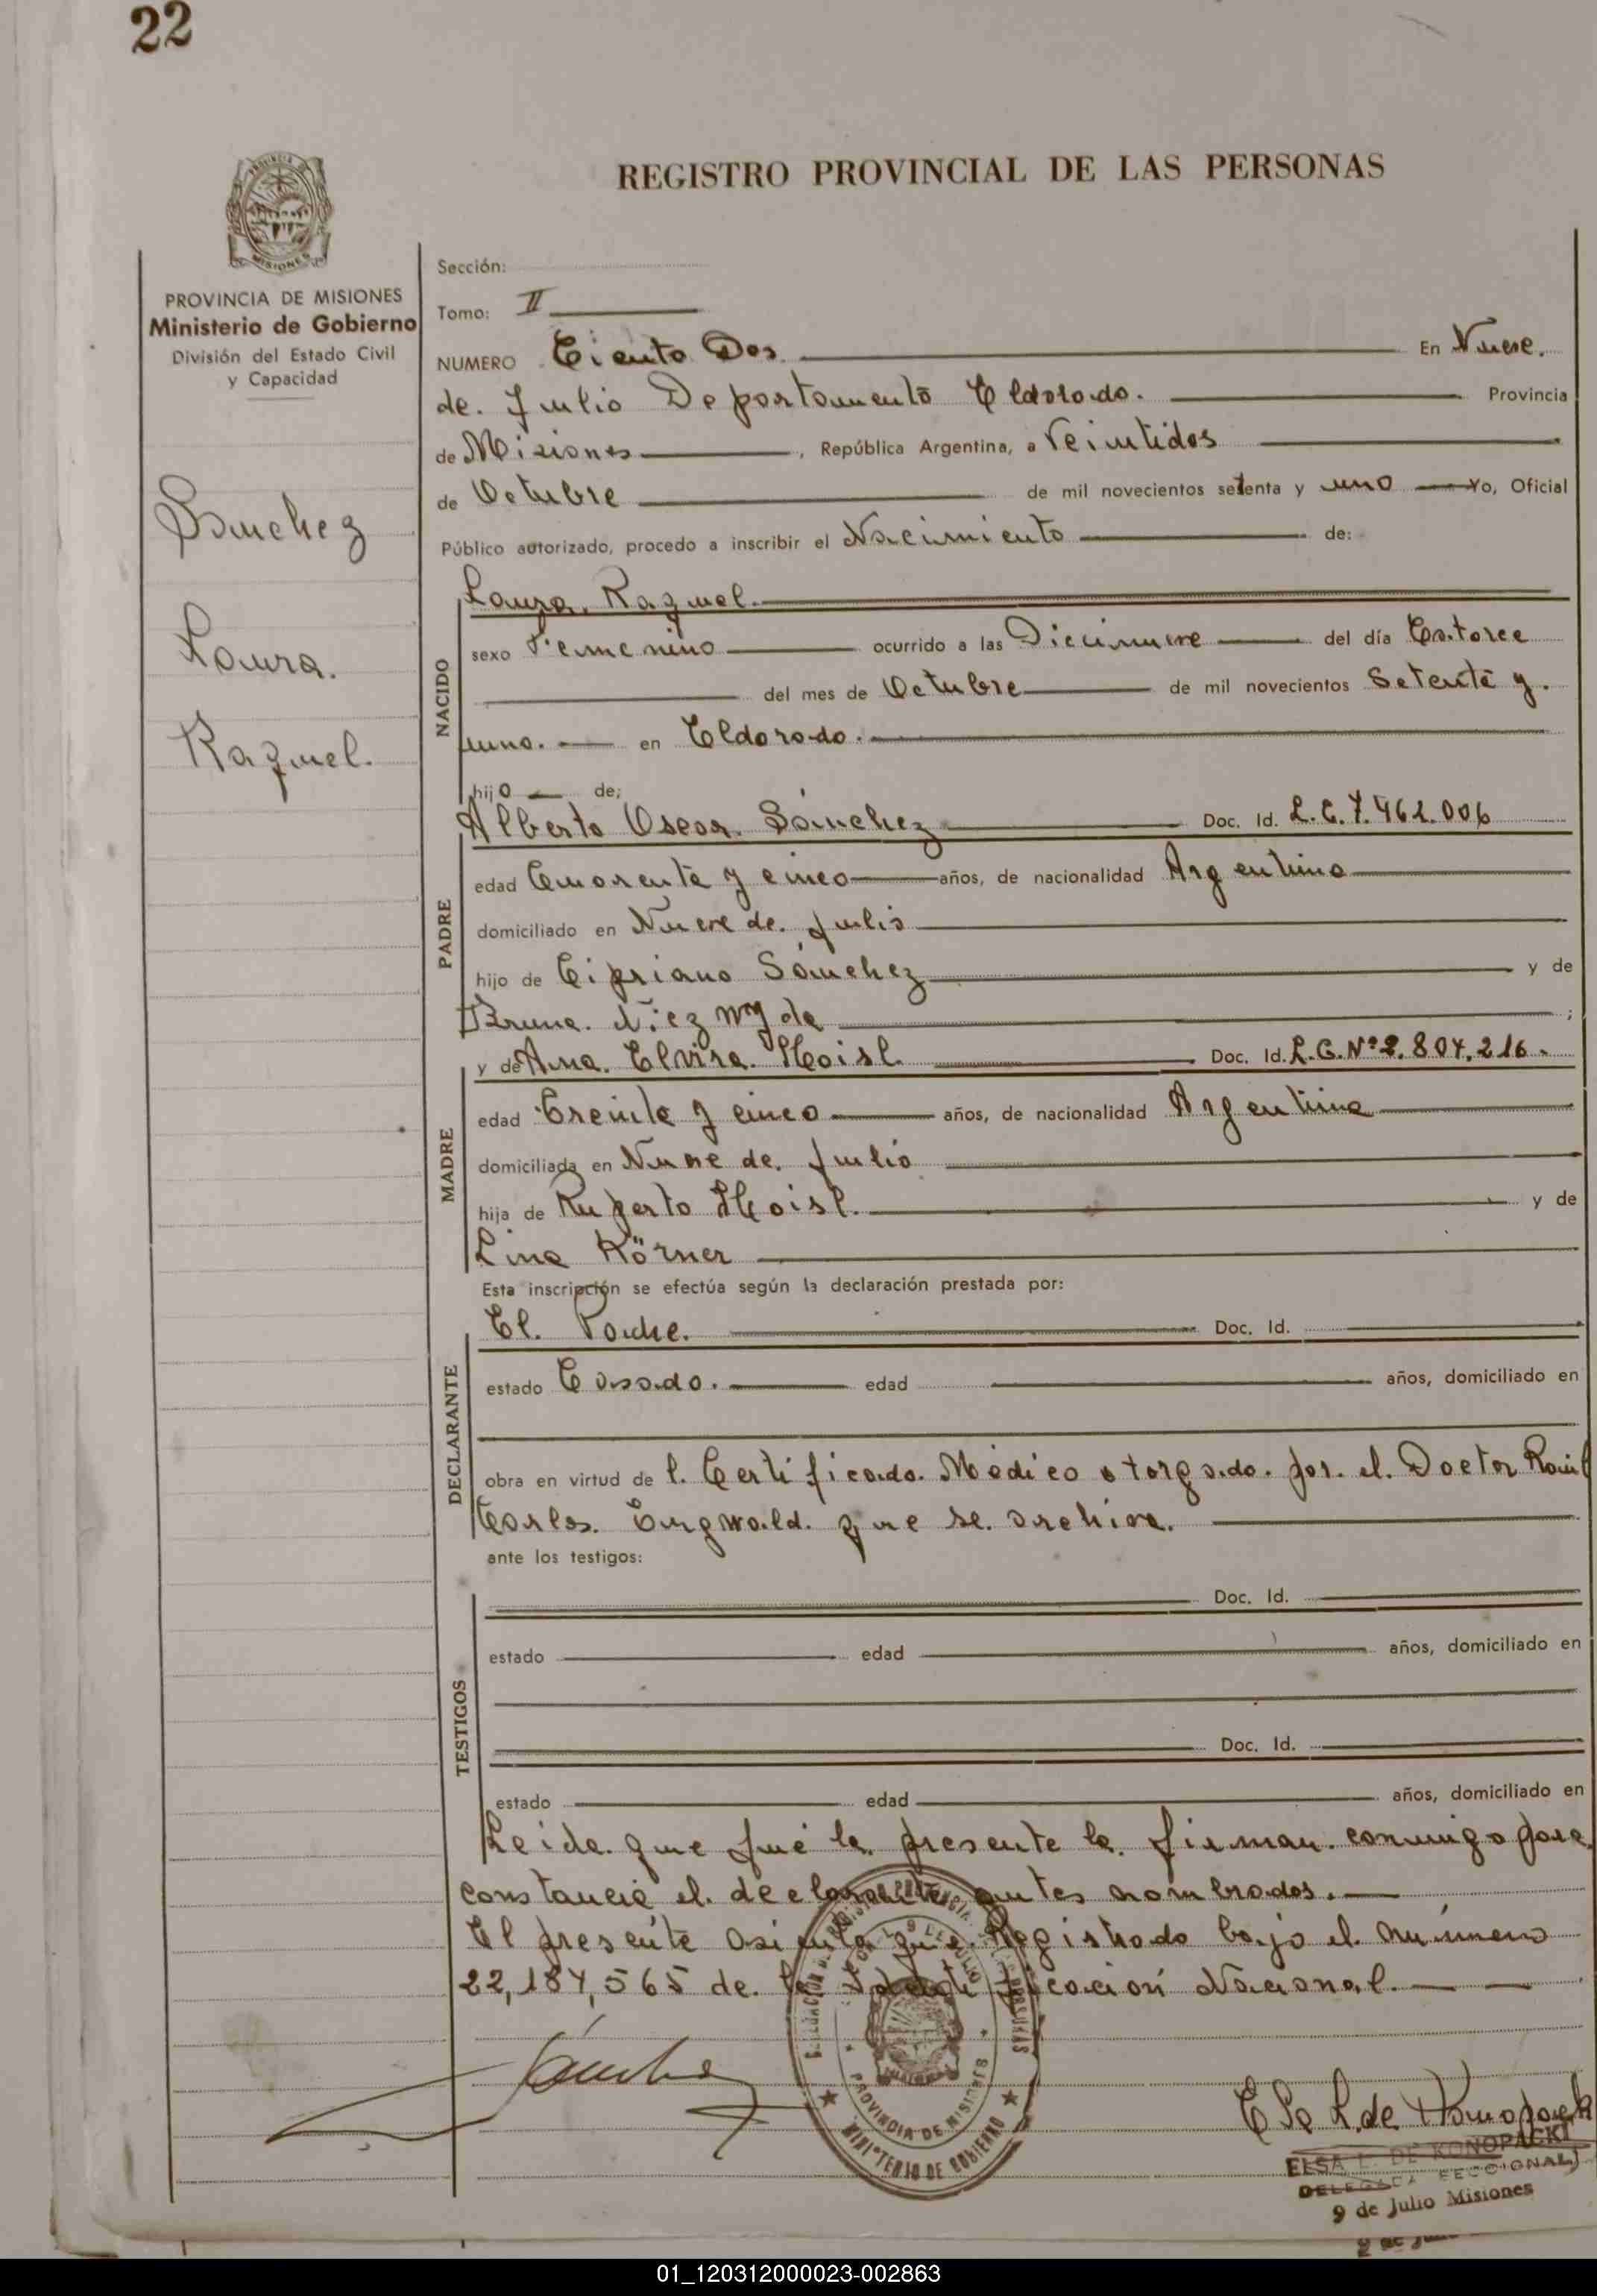 22
REGISTRO PROVINCIAL DE LAS PERSONAS
MISIONES
PROVINCIA DE MISIONES
Ministerio de Gobierno
División del Estado Civil
y Capacidad
Sanchez
Laura.
Raquel.
Sección:
Tomo: II
NUMERO Ciento Dos En Nueve.
de. Julio Departamento Eldorado. Provincia
de Misiones, República Argentina, a Veintidos
de Octubre de mil novecientos setenta y uno Yo, Oficial
Público autorizado, procedo a inscribir el Nacimiento de:
NACIDO
Laura. Raquel.
sexo Femenino ocurrido a las Diecinueve del día Catorce
del mes de Octubre de mil novecientos Setenta y.
uno. en Eldorado.
hijo de:
PADRE
Alberto Oscar. Sánchez Doc. Id. L.E. 7.462.006
edad Cuarenta y cinco años, de nacionalidad Argentino
domiciliado en Nueve de. Julio
hijo de Cipriano Sánchez y de
Bruna. ;
MADRE
y de Ana. Elvira. Hoisl. Doc. Id. L.C. Nº 2.804.216.
edad Treinta y cinco años, de nacionalidad Argentina
domiciliada en Nueve de. Julio
hija de Ruperto Hoisl. y de
Lina Körner
Esta inscripción se efectúa según la declaración prestada por:
DECLARANTE
El. Padre. Doc. Id.
estado Casado. edad años, domiciliado en
obra en virtud de l. Certificado. Médico otorgado. por. el. Doctor Raúl
Carlos. que se. archiva.
ante los testigos:
TESTIGOS
Doc. Id.
estado edad años, domiciliado en
Doc. Id.
estado edad años, domiciliado en
Leida. que fué la presente la. firman. conmigo para
constancia el. declarante antes nombrados.
El presente asiento que. Registrado bajo el. número
22,187,565 de. la Identificación Nacional.
PROVINCIA DE MISIONES
MINISTERIO DE GOBIERNO
Sánchez
E L de Konopacki
ELSA L. DE KONOPACKI
DELEGADA SECCIONAL
9 de Julio Misiones
01_120312000023-002863